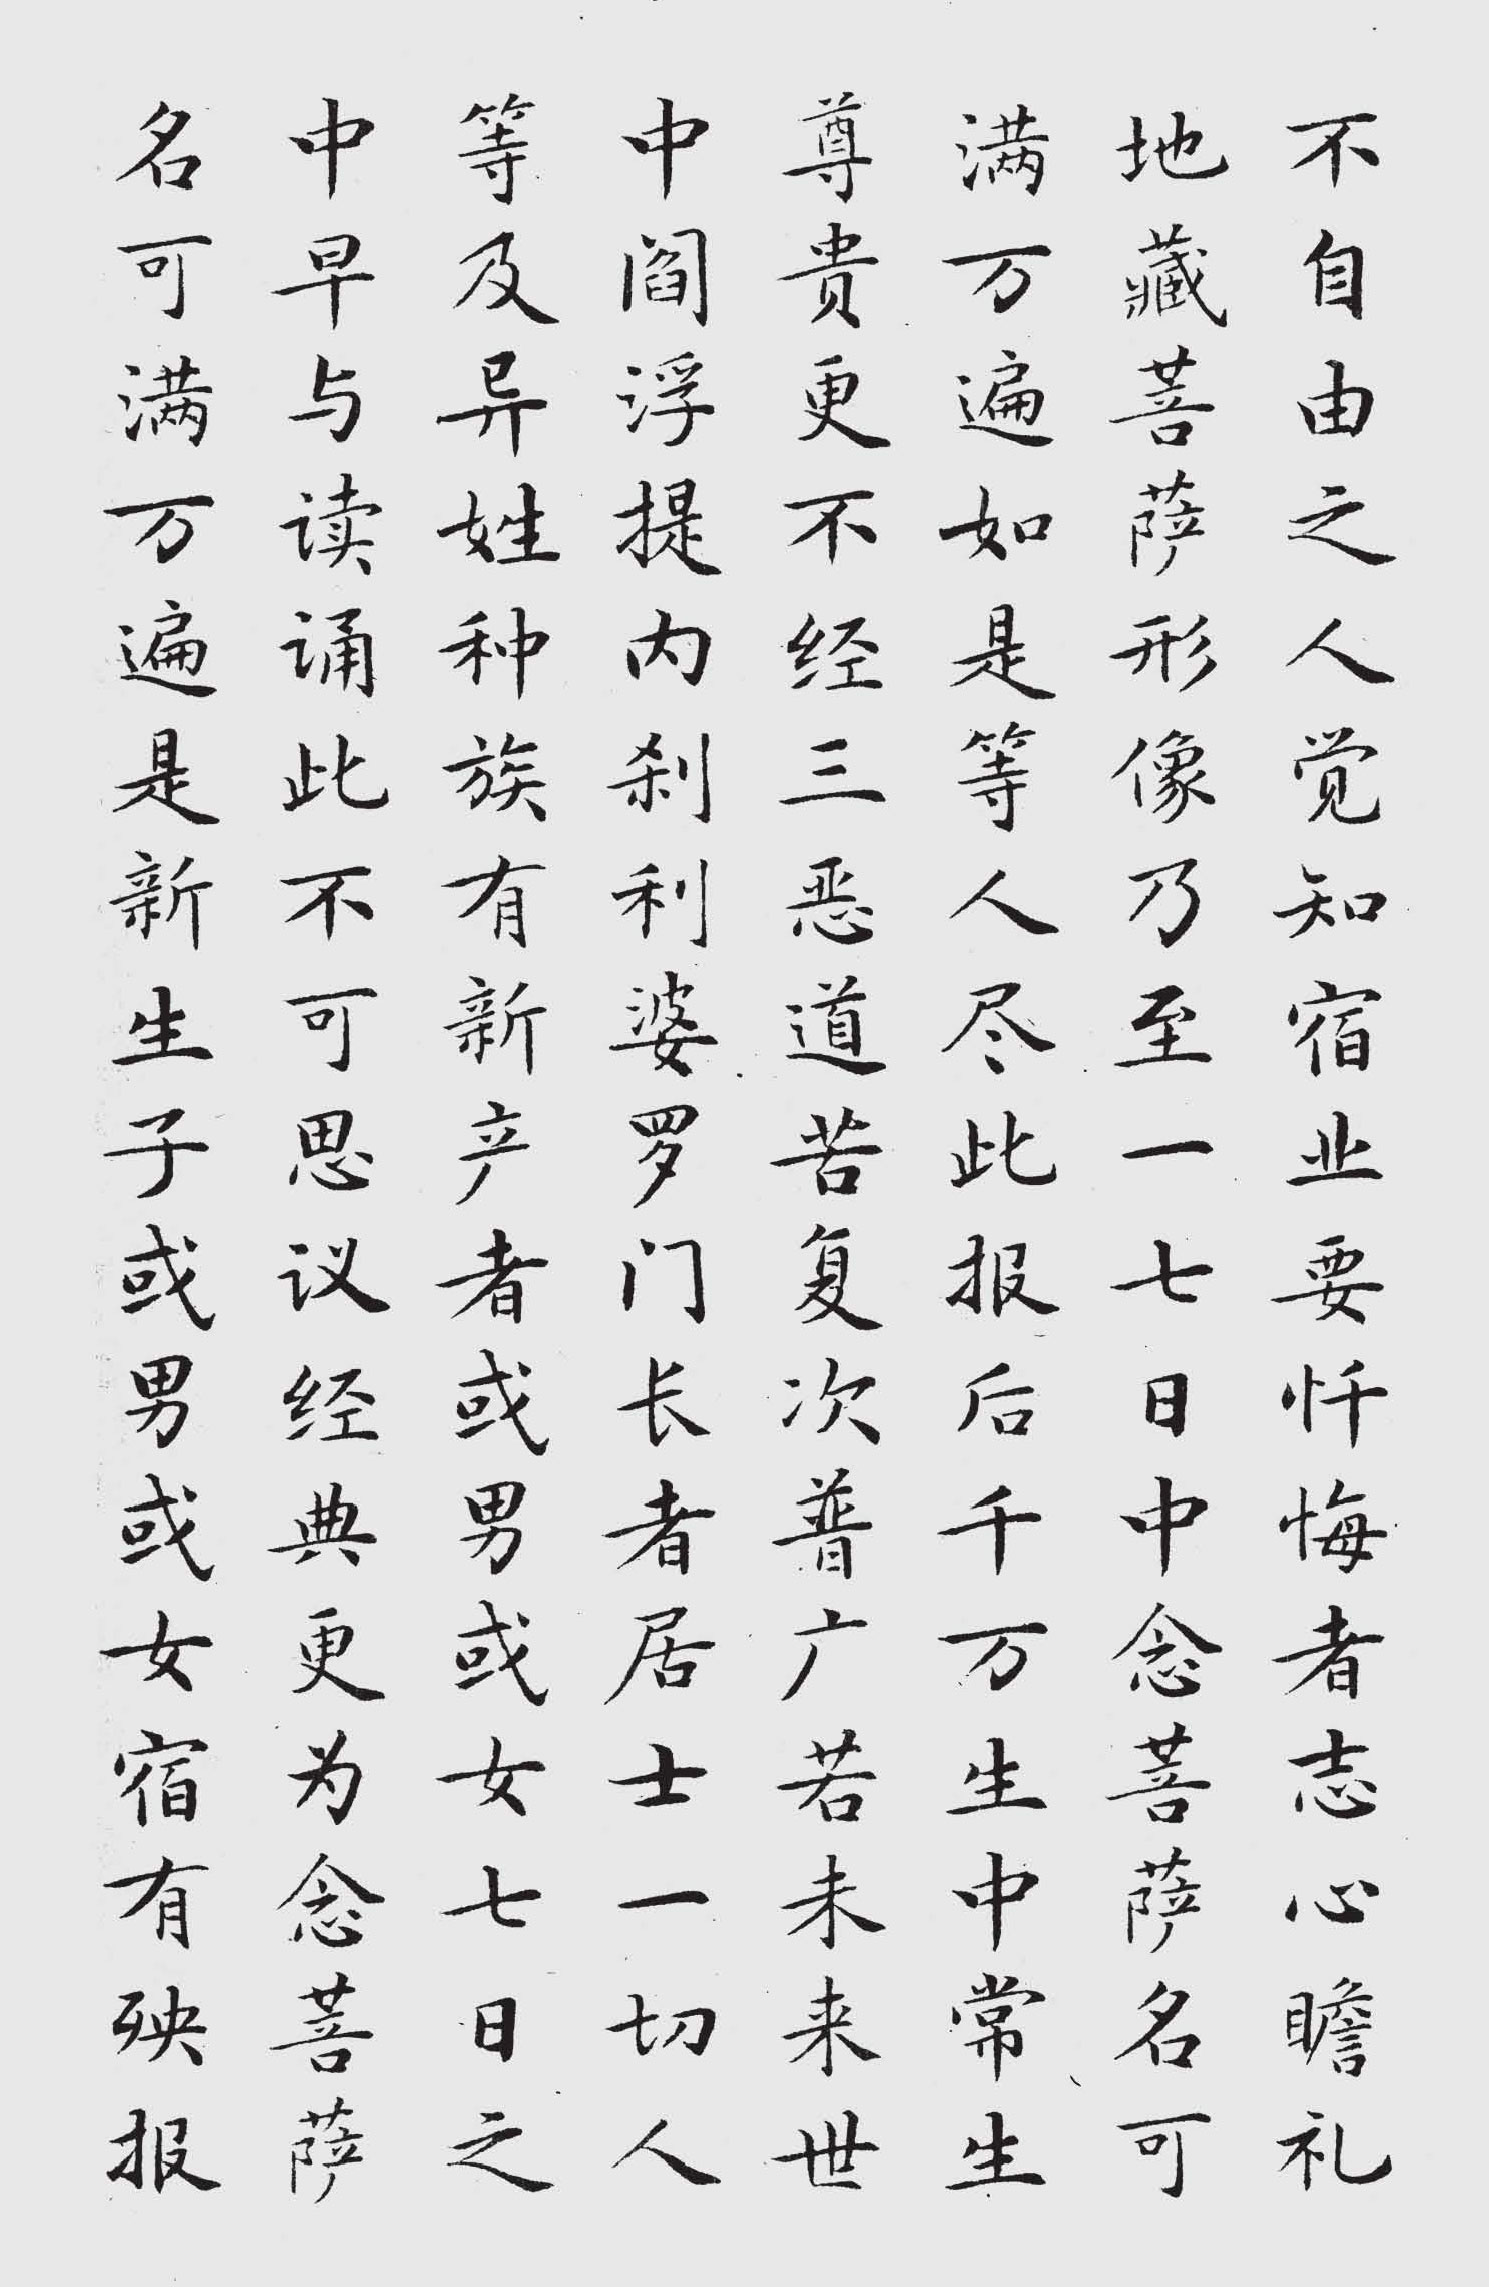 不自由之人觉知宿业要忏悔者志心瞻礼
地藏菩萨形像乃至一七日中念菩萨名可
满万遍如是等人尽此报后千万生中常生
尊贵更不经三恶道苦复次普广若未来世
中阎浮提内刹利婆罗门长者居士一切人
等及异姓种族有新产者或男或女七日之
中早与读诵此不可思议经典更为念菩萨
名可满万遍是新生子或男或女宿有殃报